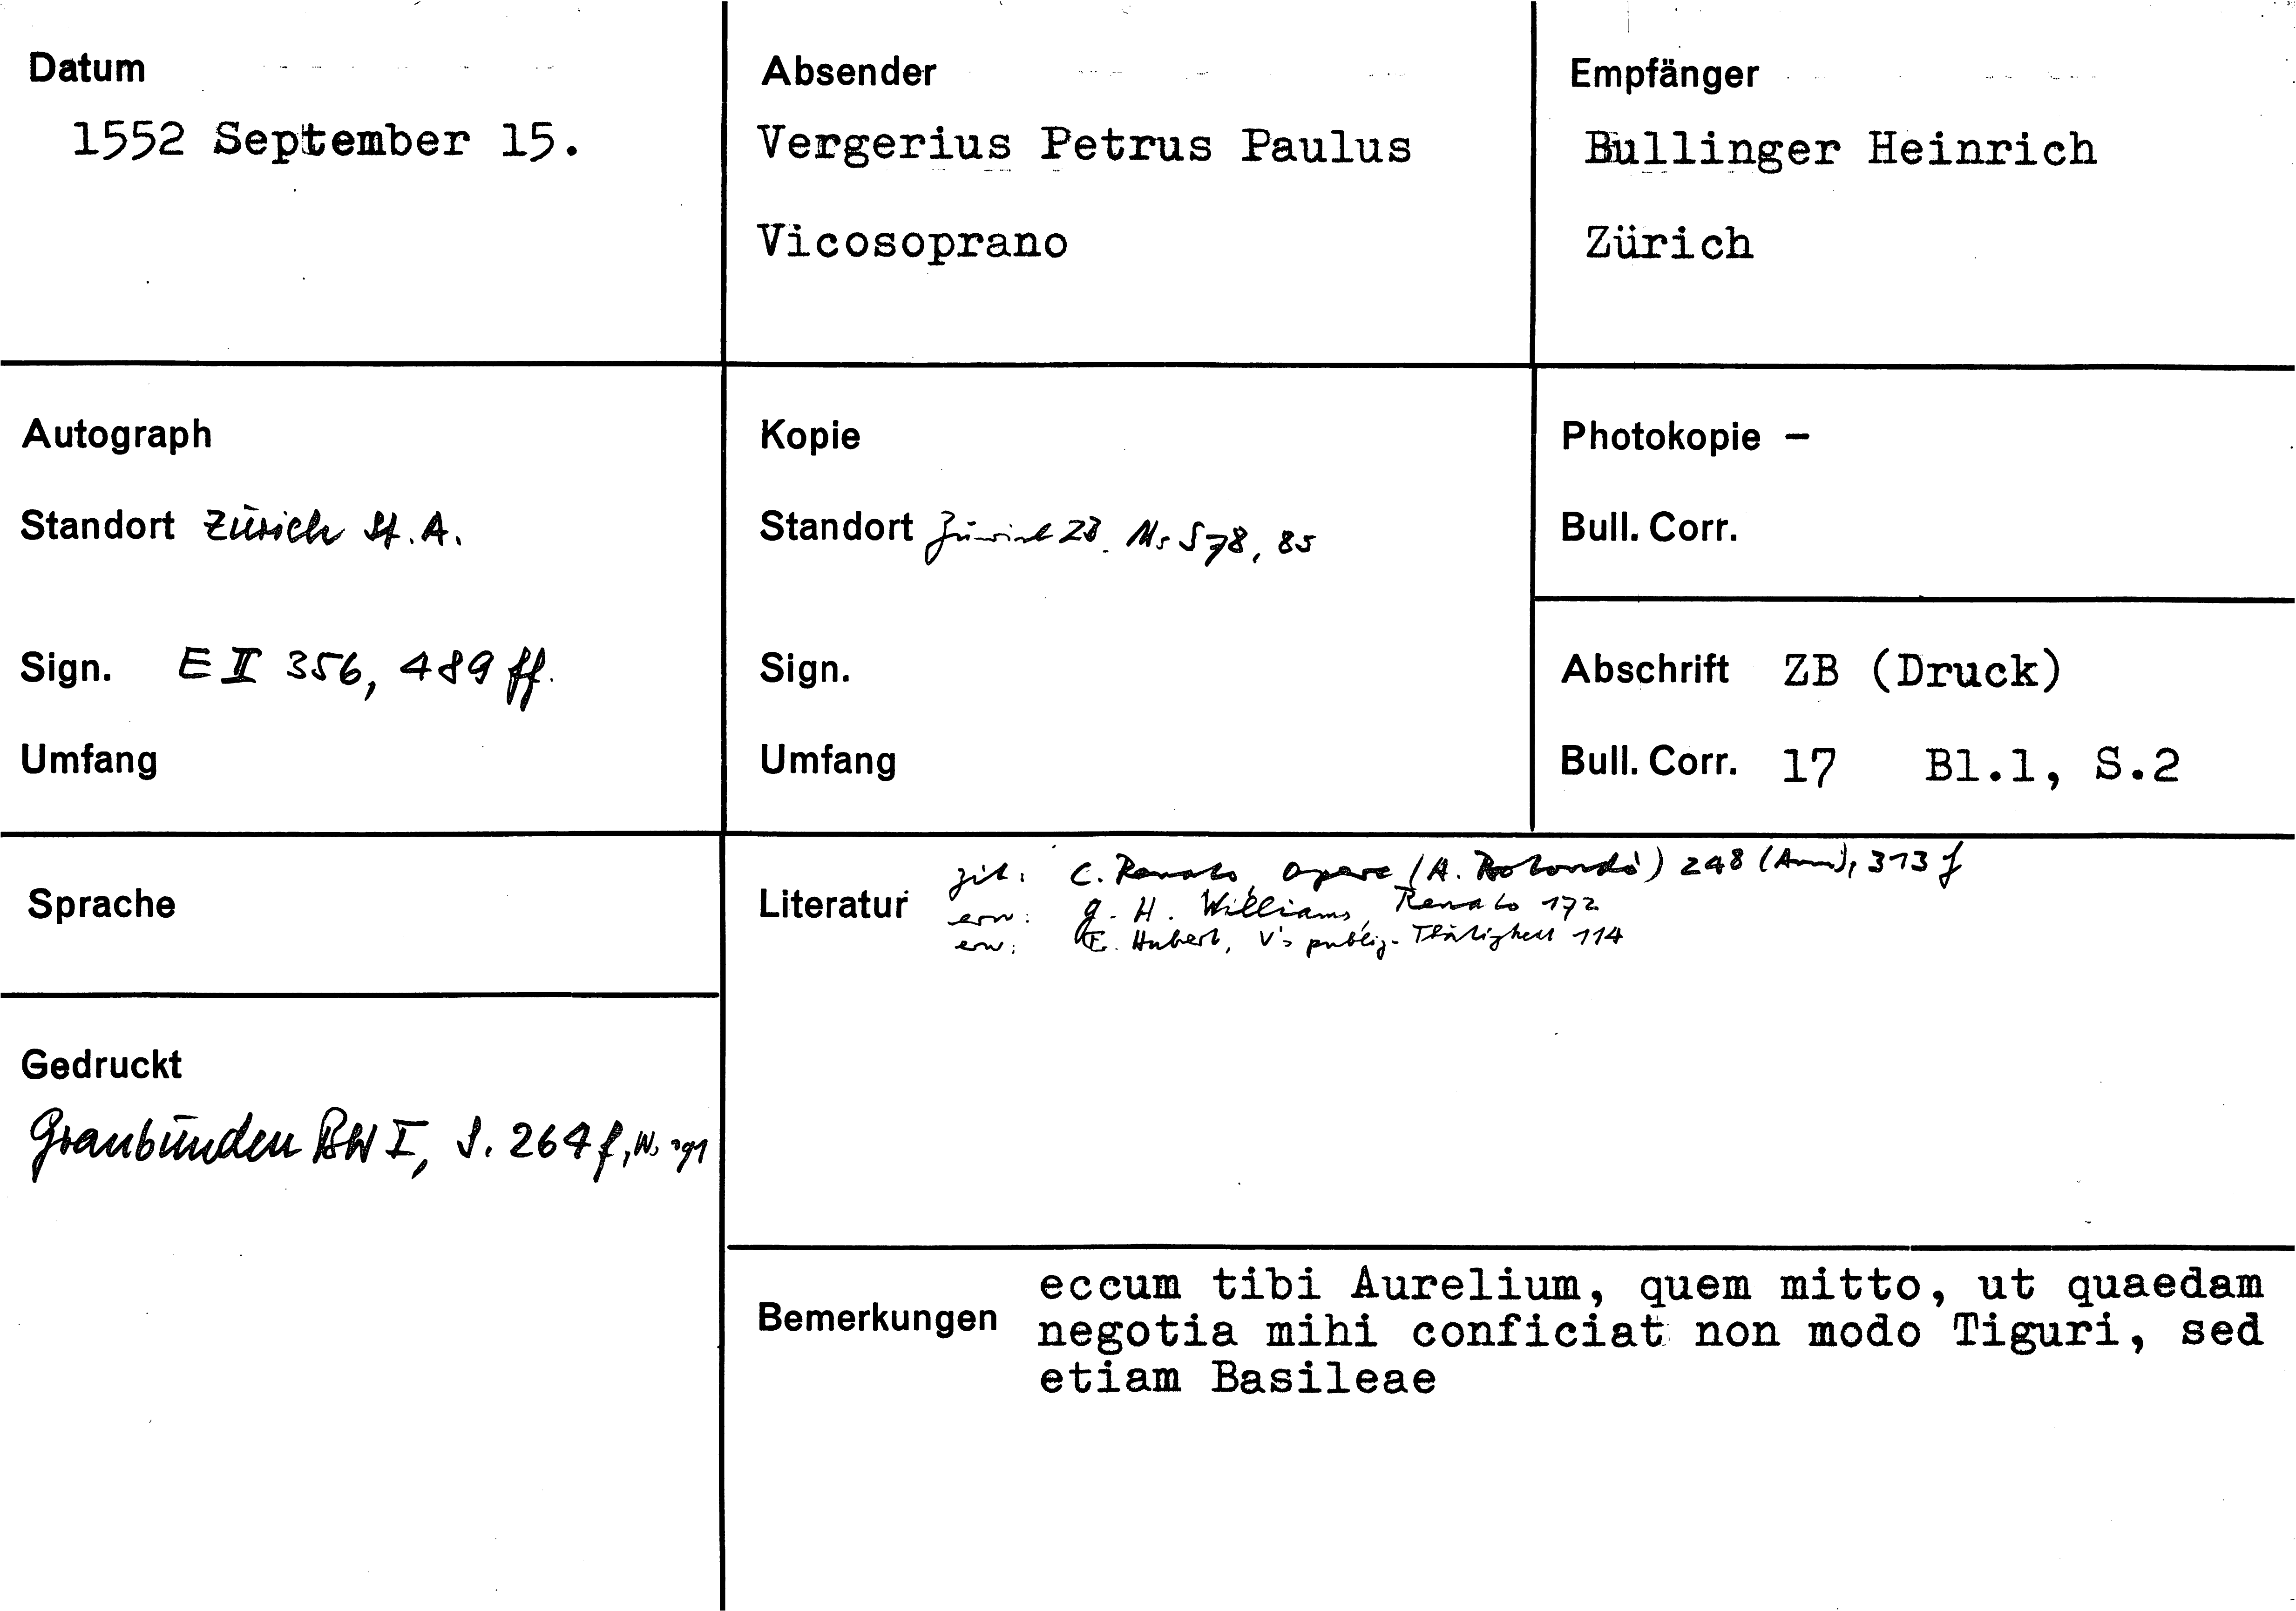 Datum
1552 September 15.
Absender
Vergerius Petrus Paulus
Vicosoprano
Empfänger
Bullinger Heinrich
Zürich
Autograph
Standort Zürich St. A.
Sign. E II 356, 489 ff.
Umfang
Kopie
Standort Zürich ZB. Ms S 78, 85
Sign.
Umfang
Photokopie –
Bull. Corr.
Abschrift ZB (Druck)
Bull. Corr. 17 Bl.1, S.2
Sprache
Gedruckt
Graubünden BW I, S. 264 f, Nr 191
Literatur zit: C. Renato, Opere (A. Rotondò) 248 (Anm), 313 f
erw: G. H. Williams, Renato 172
erw: F. Hubert, V's publiz. Thätigkeit 114
Bemerkungen eccum tibi Aurelium, quem mitto, ut quaedam
negotia mihi conficiat non modo Tiguri, sed
etiam Basileae